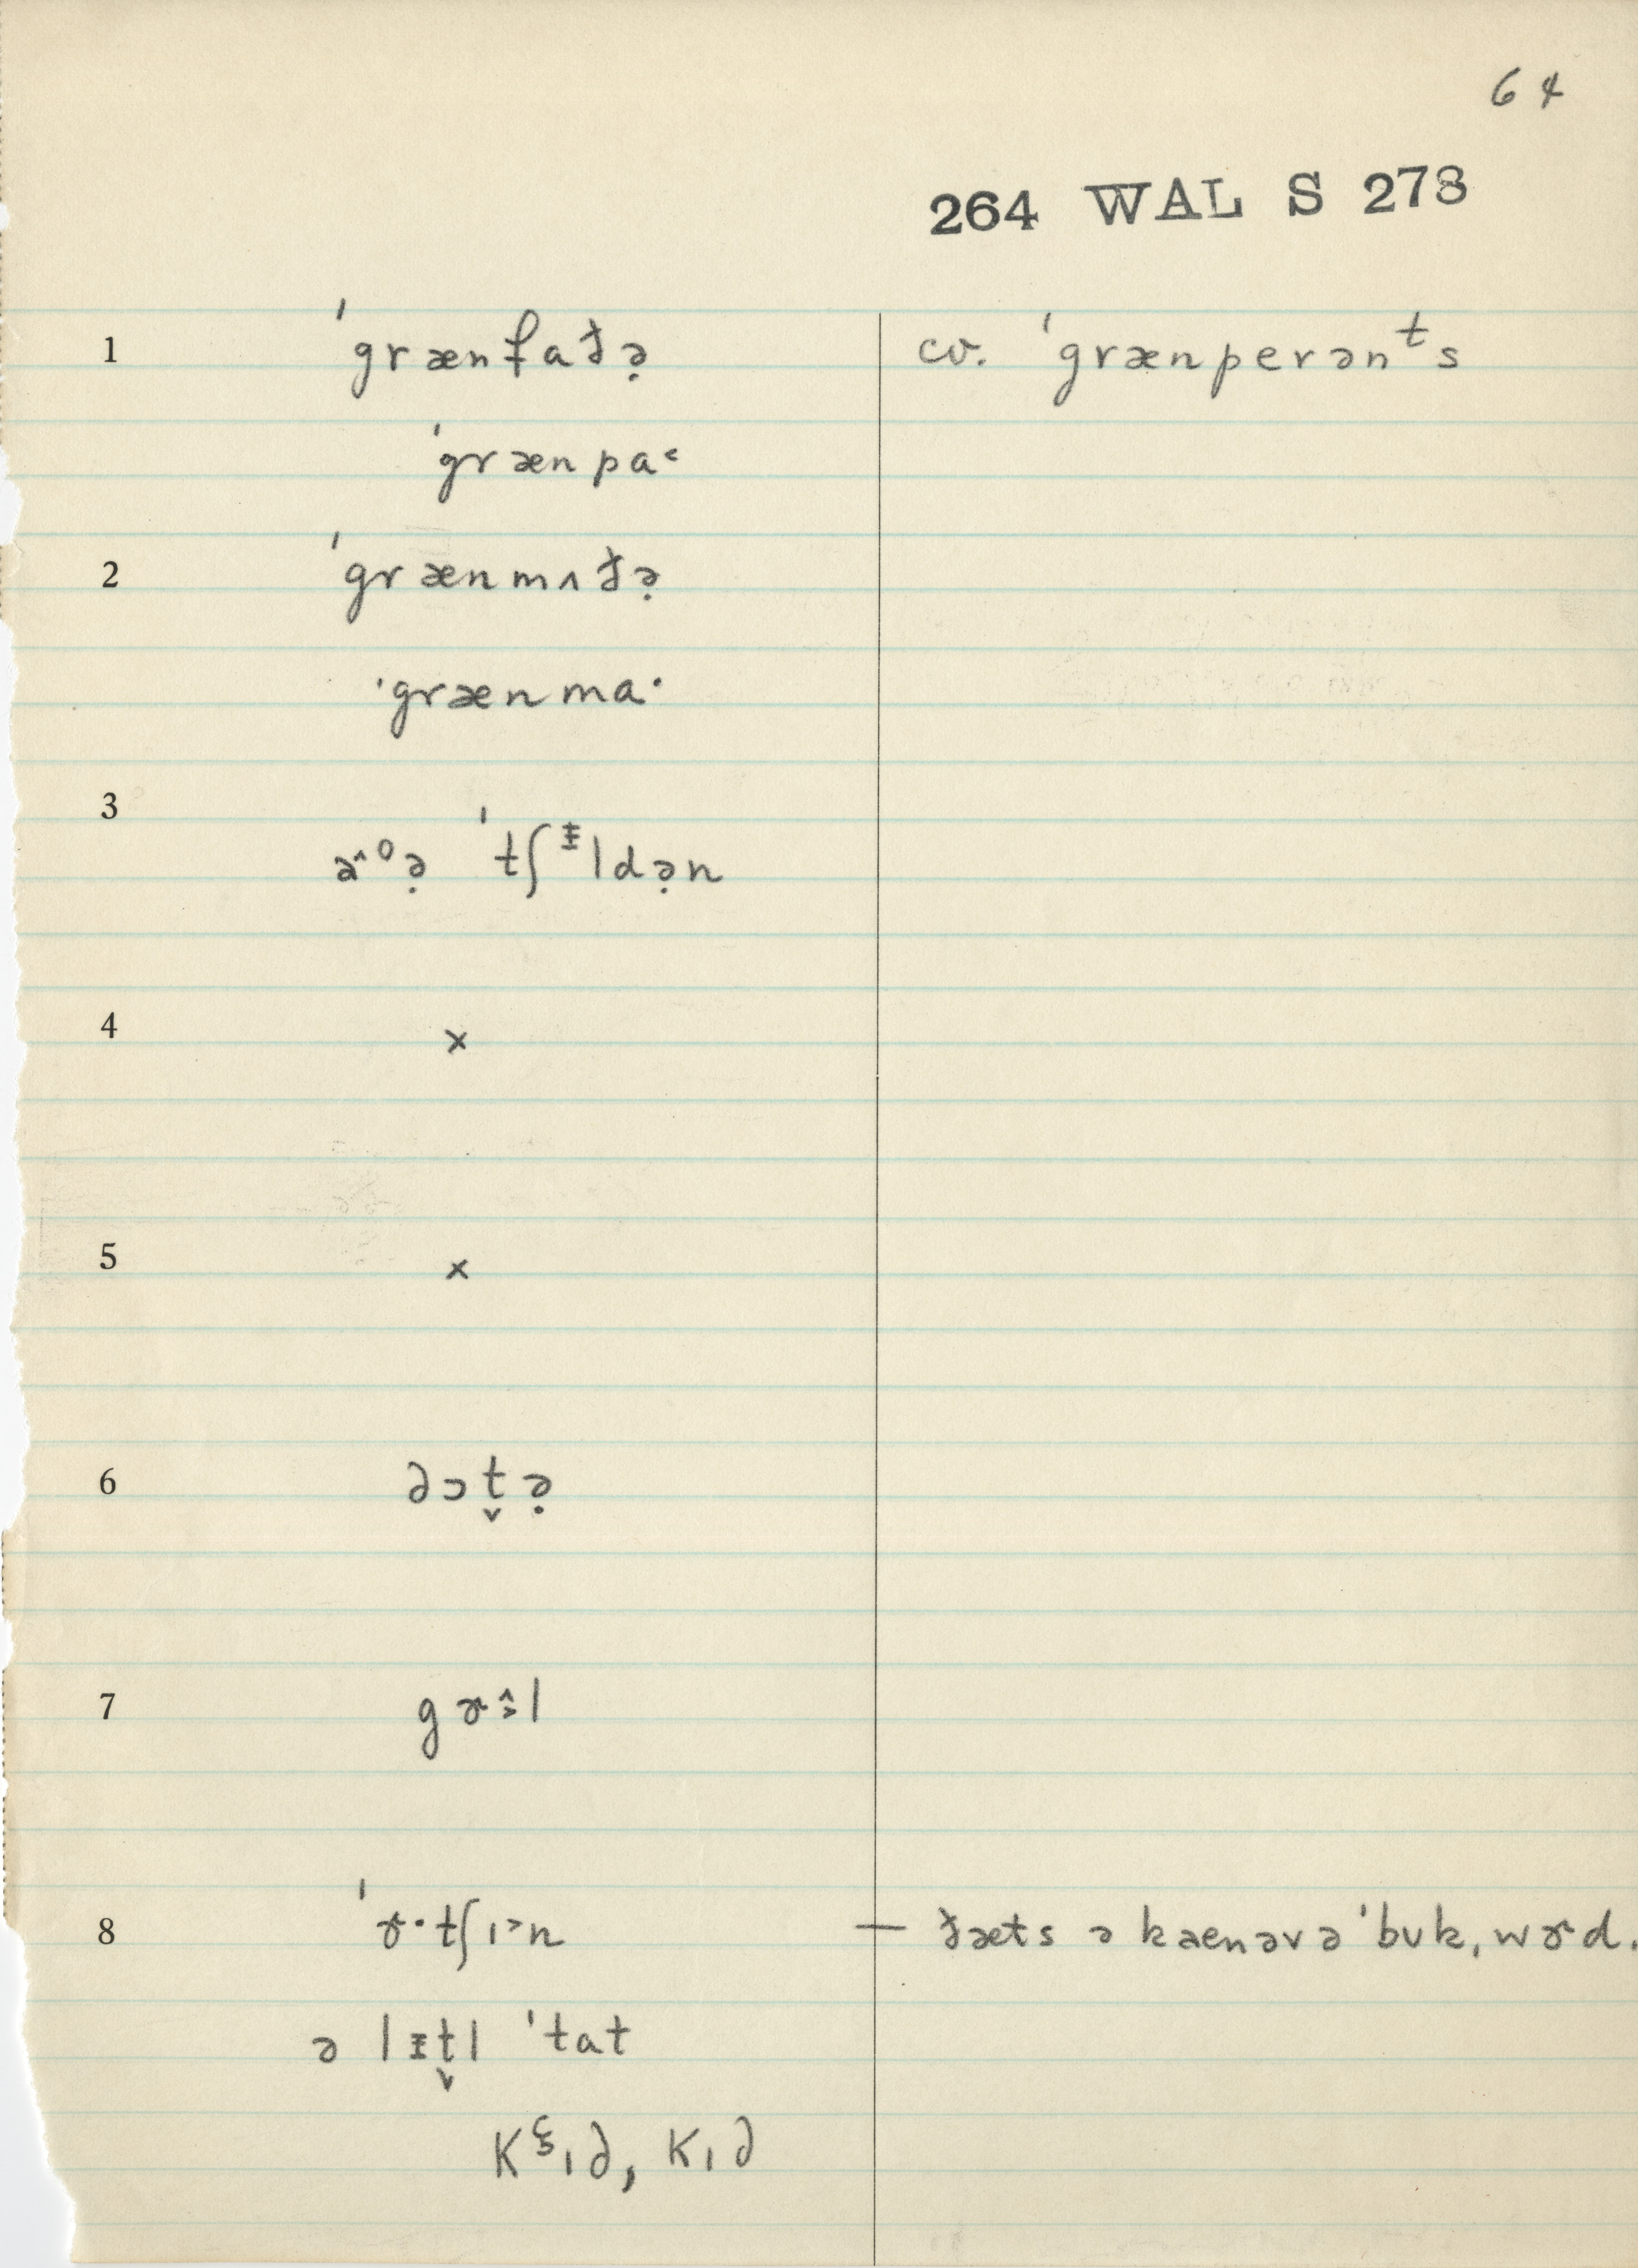 64
264 WAL S 273
1 ˈgrænfaðə̣ cv. ˈgrænperənᵗs
ˈgrænpa˂
2 ˈgrænmʌðə̣
ˈgrænma·
3 ˈtʃᵻldə̣n
4 ×
5 ×
6 ∂ɔt̬ə̣
7
8 ˈɚ·tʃɪ˃n — ðæts ə kaenəvə ˈbʊk, wɚd.
ə lᵻt̬l ˈtat
kɪ∂